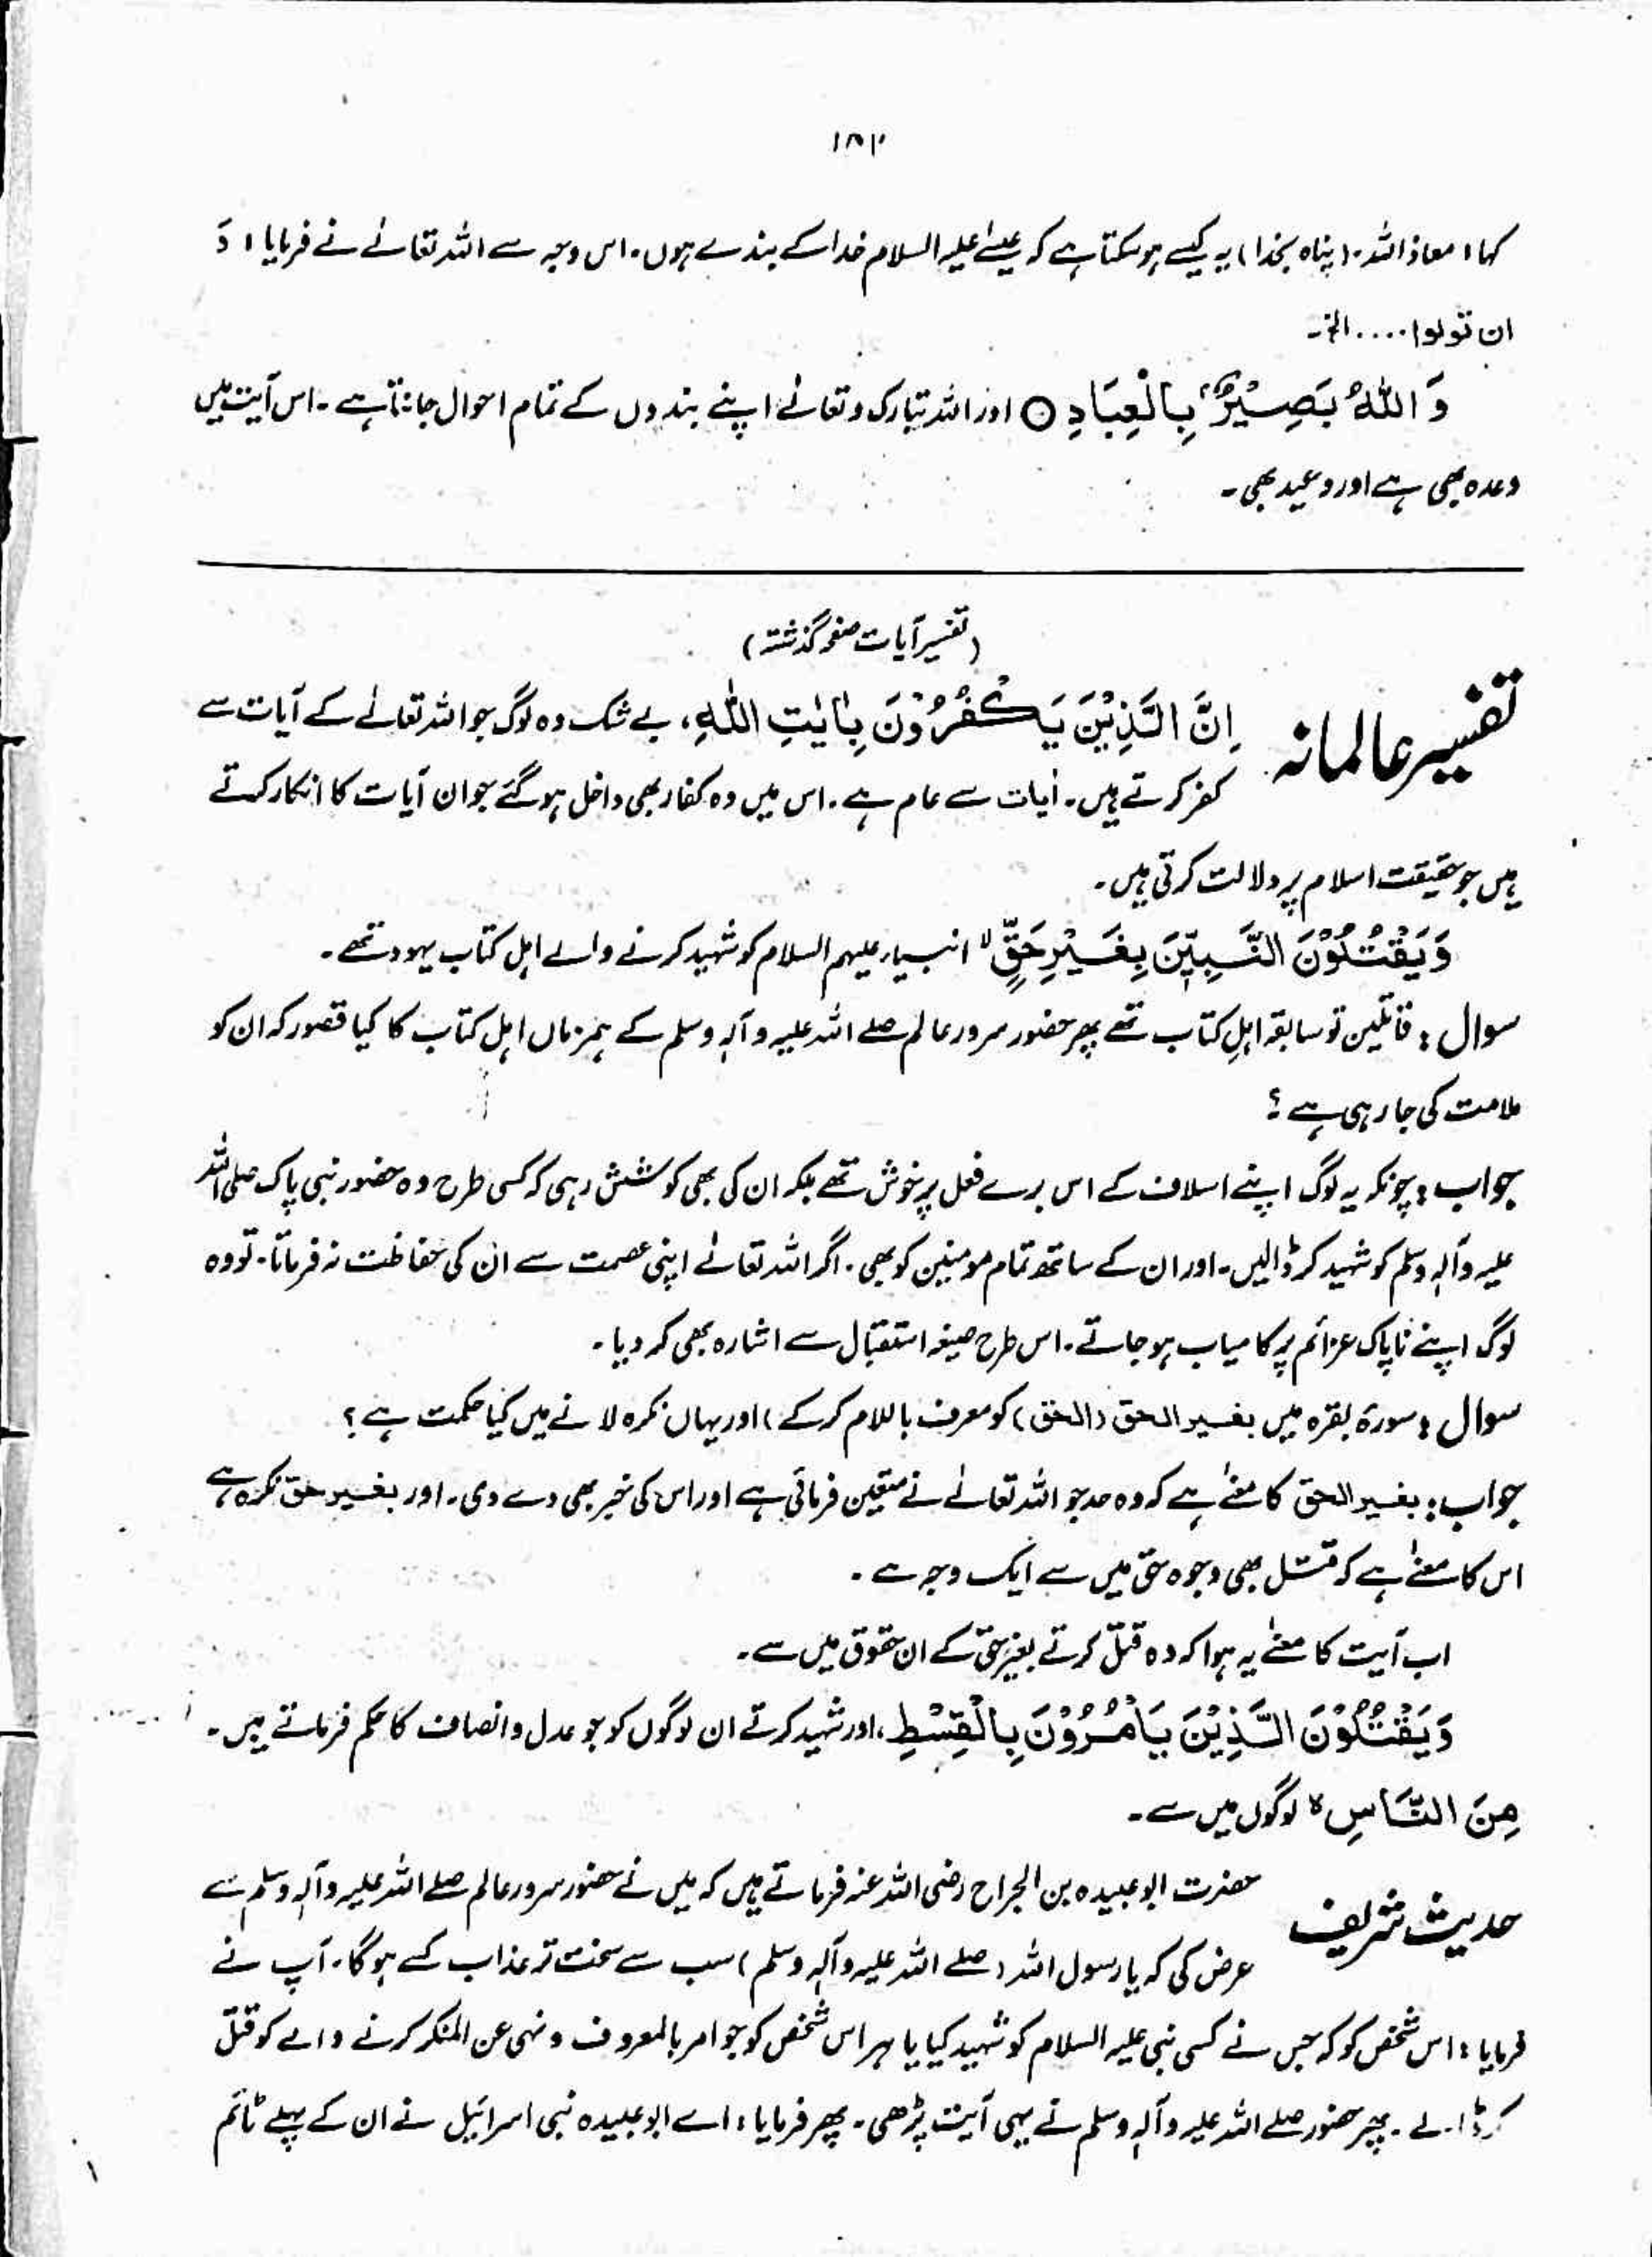 ۱۸۲
کہا، معاذ اللہ۔ (پناہ بخدا) یہ کیسے ہو سکتا ہے کہ عیسےٰ علیہ السلام خدا کے بندے ہوں۔ اس وجہ سے اللہ تعالےٰ نے فرمایا، وَ
ان تولوا ..... الخ۔
وَ اللّٰهُ بَصِيْرٌۢ بِالْعِبَادِ ○ اور اللہ تبارک و تعالےٰ اپنے بندوں کے تمام احوال جانتا ہے۔ اس آیت میں
وعدہ بھی ہے اور وعید بھی۔
(تفسیر آیات صفحہ گذشتہ)
تفسیر عالمانہ
اِنَّ الَّذِيْنَ يَكْفُرُوْنَ بِاٰيٰتِ اللّٰهِ، بے شک وہ لوگ جو اللہ تعالےٰ کے آیات سے
کفر کرتے ہیں۔ آیات سے عام ہے۔ اس میں وہ کفار بھی داخل ہو گئے جو ان آیات کا انکار کرتے
ہیں جو حقیقت اسلام پر دلالت کرتی ہیں۔
وَيَقْتُلُوْنَ النَّبِيّٖنَ بِغَيْرِ حَقٍّ ۙ انبیاء علیہم السلام کو شہید کرنے والے اہل کتاب یہود تھے۔
سوال : قاتلین تو سابقہ اہلِ کتاب تھے پھر حضور سرور عالم صلے اللہ علیہ و آلہٖ وسلم کے ہمزماں اہل کتاب کا کیا قصور کہ ان کو
ملامت کی جا رہی ہے ؟
جواب : چونکہ یہ لوگ اپنے اسلاف کے اس برے فعل پر خوش تھے بلکہ ان کی بھی کوشش رہی کہ کسی طرح وہ حضور نبی پاک صلی اللہ
علیہ وآلہٖ وسلم کو شہید کر ڈالیں۔ اور ان کے ساتھ تمام مومنین کو بھی۔ اگر اللہ تعالےٰ اپنی عصمت سے ان کی حفاظت نہ فرماتا۔ تو وہ
لوگ اپنے ناپاک عزائم پر کامیاب ہو جاتے۔ اس طرح صیغہ استقبال سے اشارہ بھی کر دیا۔
سوال : سورۃ بقرہ میں بغیر الحق (الحق) کو معرف باللام کر کے) اور یہاں نکرہ لانے میں کیا حکمت ہے ؟
جواب : بغیر الحق کا معنےٰ ہے کہ وہ حد جو اللہ تعالےٰ نے متعین فرمائی ہے اور اس کی خبر بھی دے دی۔ اور بغیر حق نکرہ ہے
اس کا معنےٰ ہے کہ قتل بھی وجوہ حق میں سے ایک وجہ ہے۔
اب آیت کا معنےٰ یہ ہوا کہ وہ قتل کرتے بغیر حق کے ان حقوق میں سے۔
وَيَقْتُلُوْنَ الَّذِيْنَ يَاْمُرُوْنَ بِالْقِسْطِ، اور شہید کرتے ان لوگوں کو جو عدل و انصاف کا حکم فرماتے ہیں۔
مِنَ النَّاسِ ۙ لوگوں میں سے۔
حدیث شریف
حضرت ابو عبیدہ بن الجراح رضی اللہ عنہ فرماتے ہیں کہ میں نے حضور سرور عالم صلے اللہ علیہ وآلہٖ وسلم سے
عرض کی کہ یا رسول اللہ (صلے اللہ علیہ وآلہٖ وسلم) سب سے سخت تر عذاب کسے ہو گا۔ آپ نے
فرمایا : اس شخص کو کہ جس نے کسی نبی علیہ السلام کو شہید کیا یا ہر اس شخص کو جو امر بالمعروف و نہی عن المنکر کرنے والے کو قتل
کر ڈالے۔ پھر حضور صلے اللہ علیہ وآلہٖ وسلم نے یہی آیت پڑھی۔ پھر فرمایا : اے ابو عبیدہ نبی اسرائیل نے ان کے پہلے ٹائم